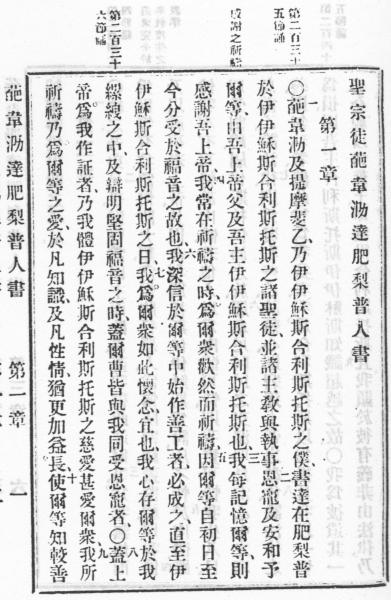 聖宗徒葩韋泐達肥梨普人書
第一章
第二百三十
五節誦
〇一葩韋泐及提摩斐乙乃伊伊穌斯合利斯托斯之僕書達在肥梨普
二於伊伊穌斯合利斯托斯之諸聖徒並諸主教與執事恩寵及安和予
感謝之祈禱
爾等由吾上帝父及吾主伊伊穌斯合利斯托斯也三我每記憶爾等則
感謝吾上帝四我常在祈禱之時爲爾衆歡然而祈禱五因爾等自初日至
今分受於福音之故也六我深信於爾等中始作善工者必成之直至伊
伊穌斯合利斯托斯之日七我爲爾衆如此懷念宜也我心存爾等於我
第二百三十
六節誦
縲絏之中及辯明堅固福音之時蓋爾曹皆與我同受恩寵者〇八蓋上
帝爲我作証者乃我體伊伊穌斯合利斯托斯之慈愛甚愛爾衆九我所
祈禱乃爲爾等之愛於凡知識及凡性情猶更加益長十使爾等知較善
葩韋泐達肥梨普人書 第一章 一